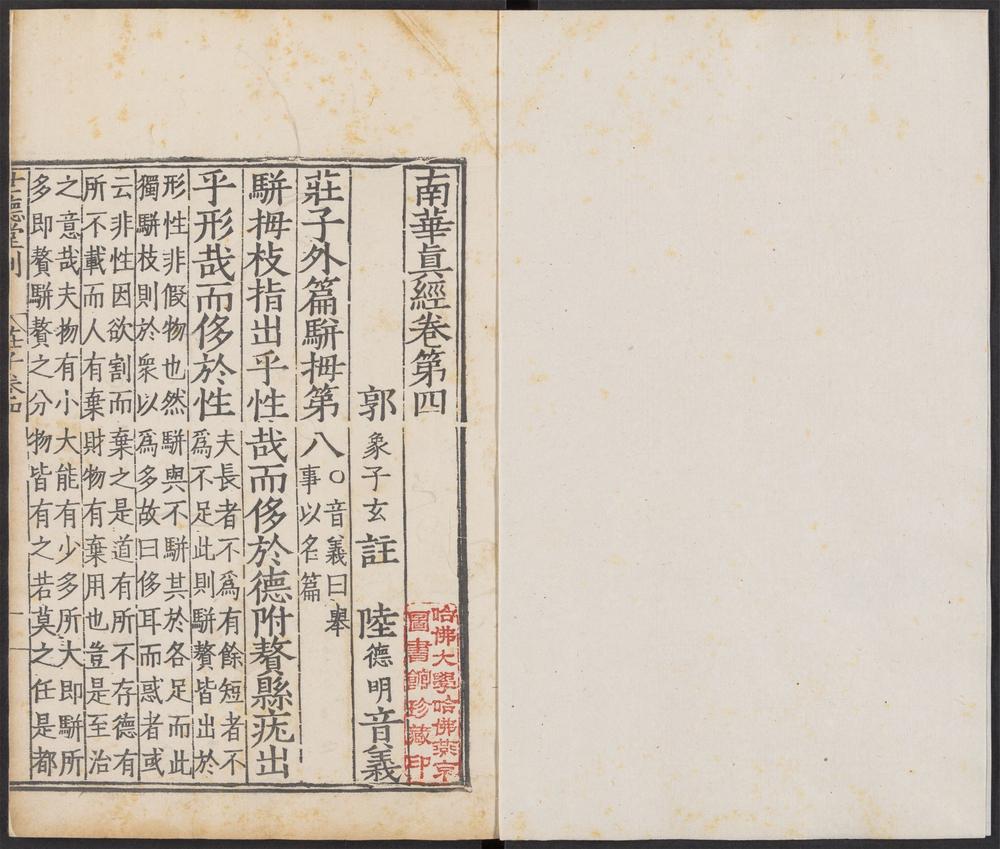 南華眞經卷第四
哈佛大學哈佛燕京
圖書館珍藏印
郭象子玄註 陸德明音義
莊子外篇駢拇第八〇音義曰舉
事以名篇
駢拇枝指出乎性哉而侈於德附贅縣疣出
乎形哉而侈於性夫長者不爲有餘短者不
爲不足此則駢贅皆出於
形性非假物也然駢與不駢其於各足而此
獨駢枝則於衆以爲多故曰侈耳而惑者或
云非性因欲割而棄之是道有所不存德有
所不載而人有棄財物有棄用也豈是至治
之意哉夫物有小大能有少多所大即駢所
多即贅駢贅之分物皆有之若莫之任是都